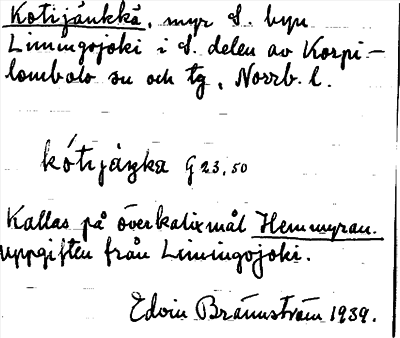 Kotijänkkä, myr S. byn
Liningojoki i S. delen av Korpi-
lombolo sn och tg, Norrb. l.
kótijäŋka G 23,50
Kallas på överkalixmål Hemmyran.
uppgiften från Liningojoki.
Edvin Brännström 1939.